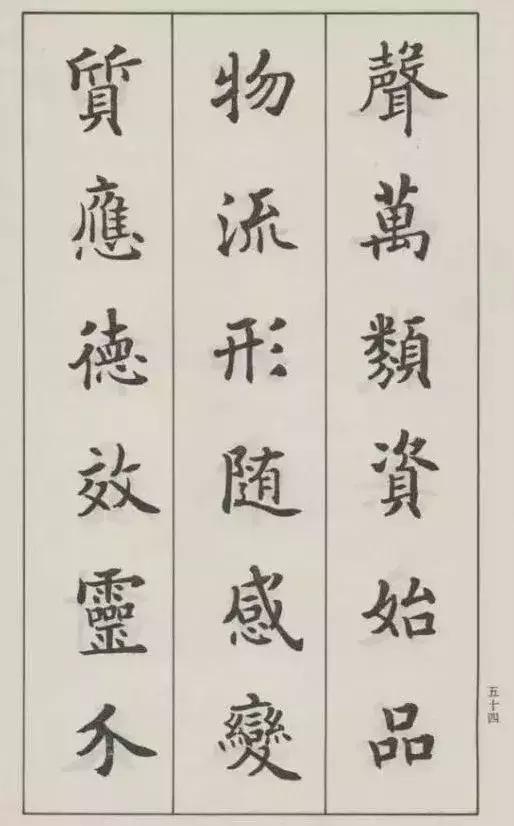 聲萬類資始品
物流形随感變
質應德效靈介
五十四